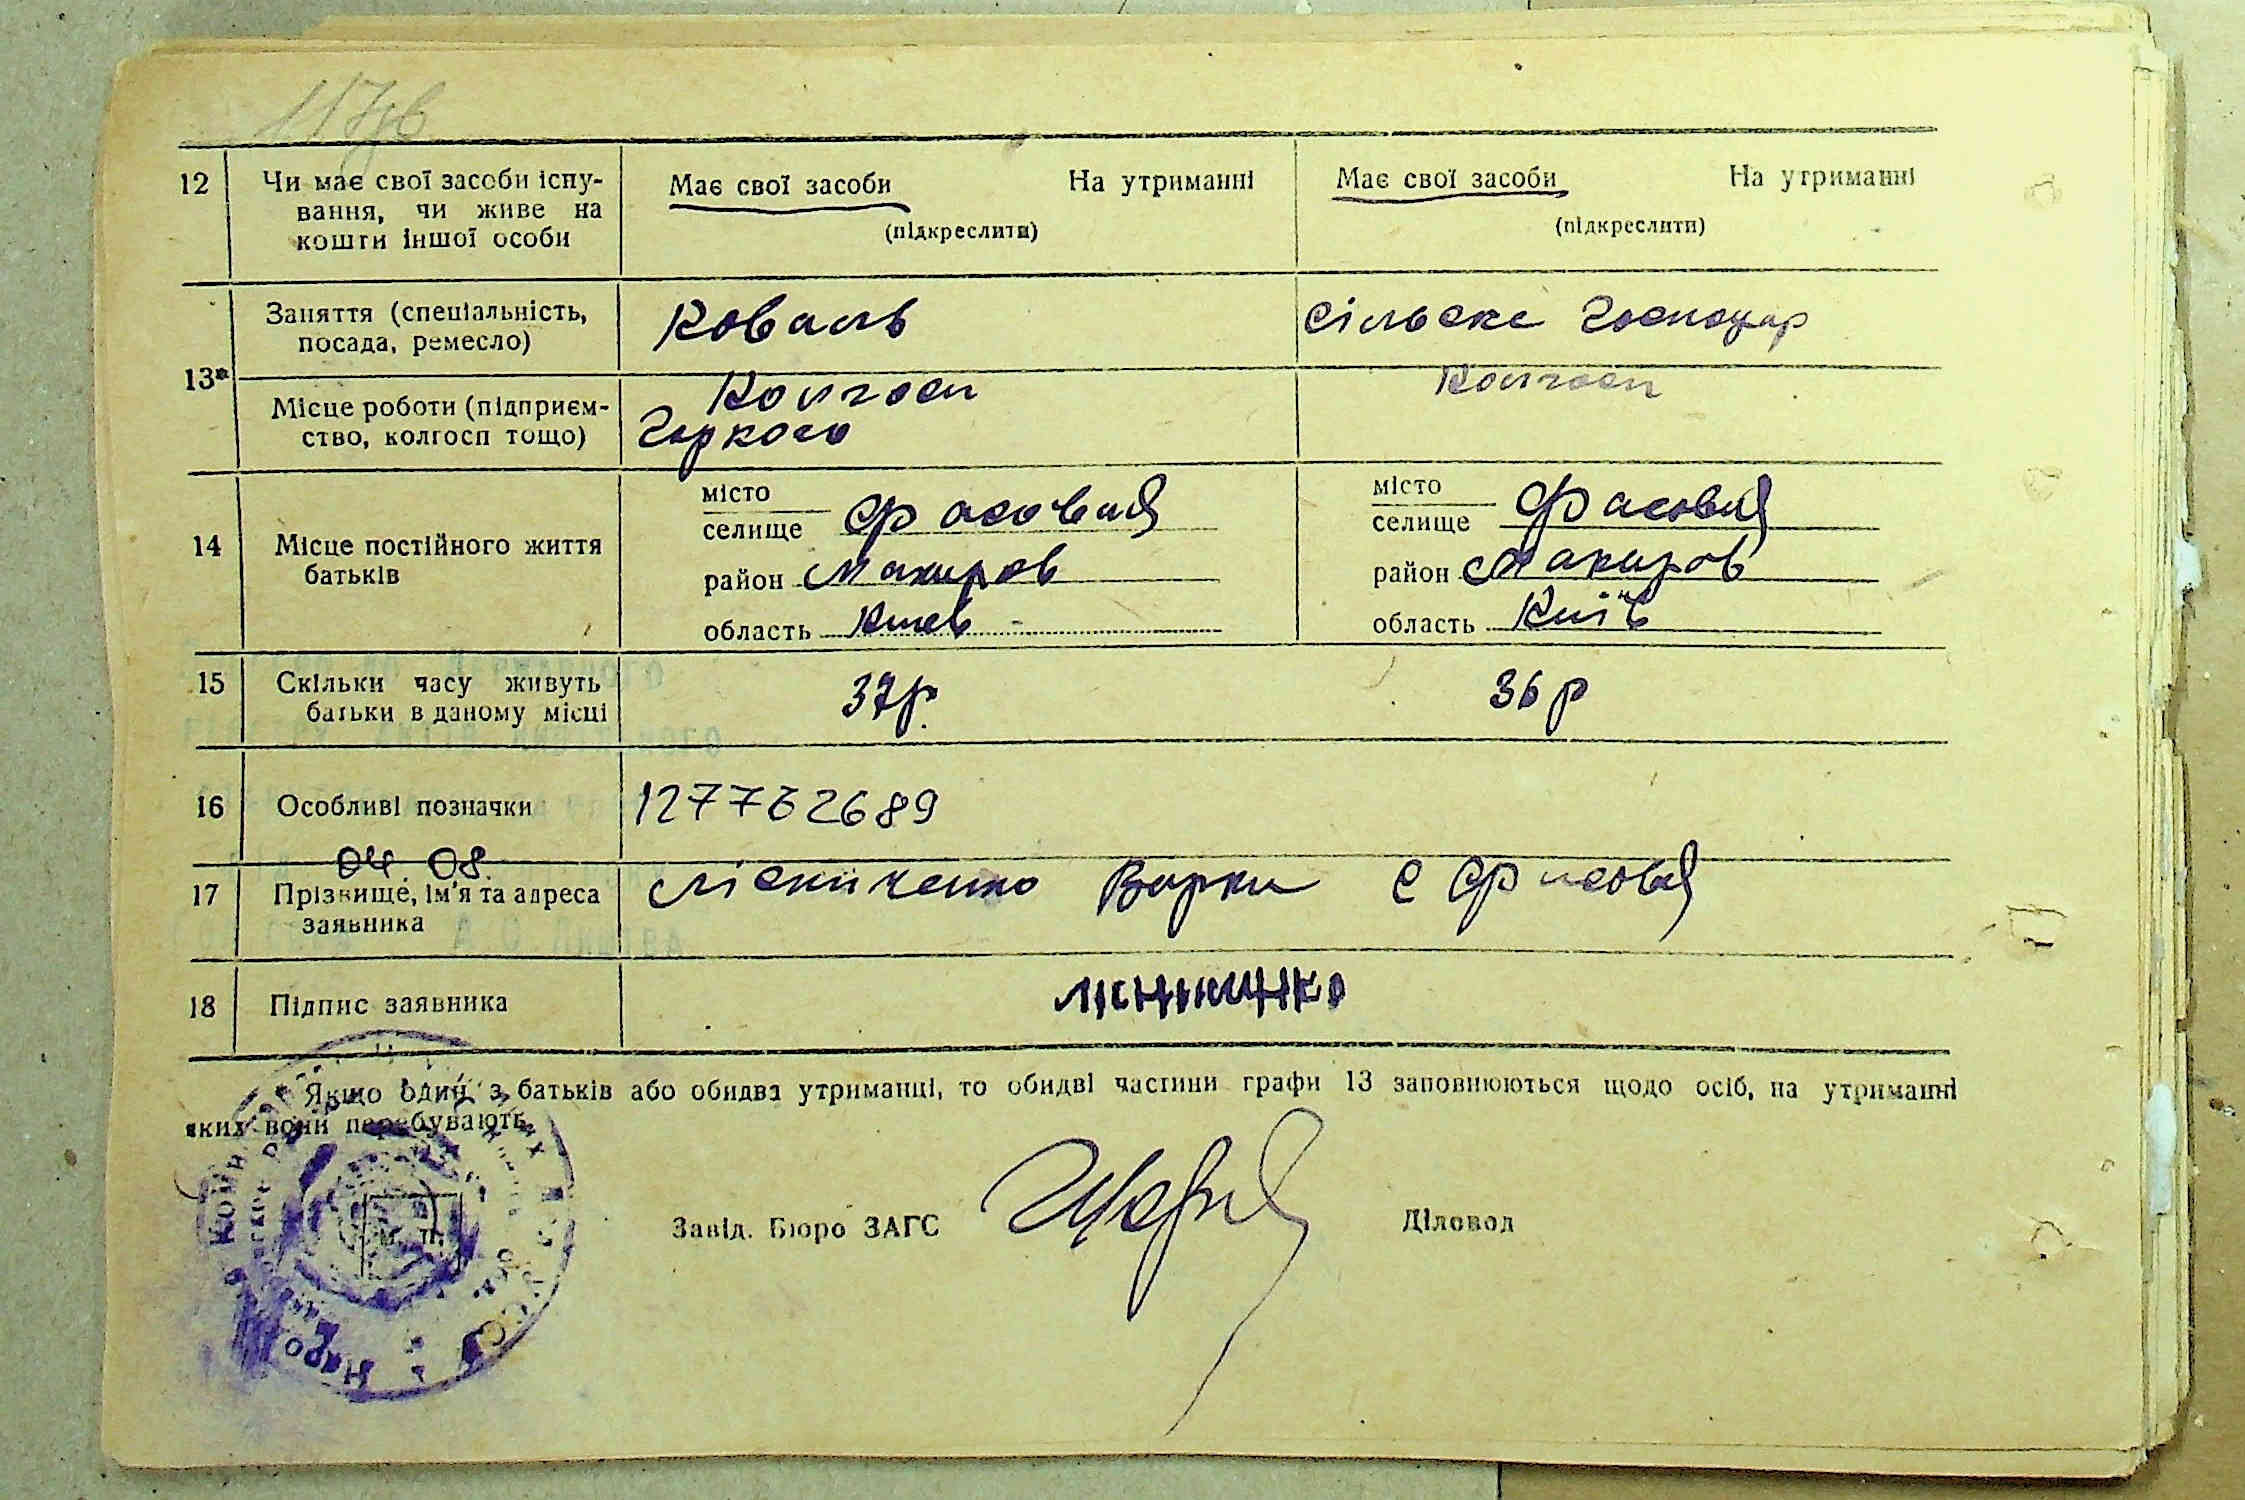 117зв
12 Чи має свої засоби існу- Має свої засоби На утриманні Має свої засоби На утриманні
вання, чи живе на (підкреслити) (підкреслити)
кошти іншої особи
13* Заняття (спеціальність, Коваль Сільске Господар
посада, ремесло)
Місце роботи (підприєм- Колгосп Колгосп
ство, колгосп тощо) Горкого
14 Місце постійного життя батьків
місто місто
селище Фасовая селище Фасовая
район Макиров район Макиров
область Киев область Київ
15 Скільки часу живуть 37р. 36р
батьки в даному місці
16 Особливі позначки
04. 08.
17 Прізвище, ім'я та адреса Варки с Фасовая
заявника
18 Підпис заявника
Якщо один з батьків або обидва утриманці, то обидві частини графи 13 заповнюються щодо осіб, на утриманні
яких вони перебувають.
М. П.
Завід. Бюро ЗАГС Діловод